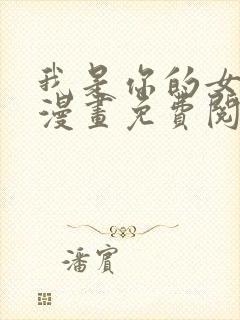 我是你的女
漫畫免費閱
潘賓